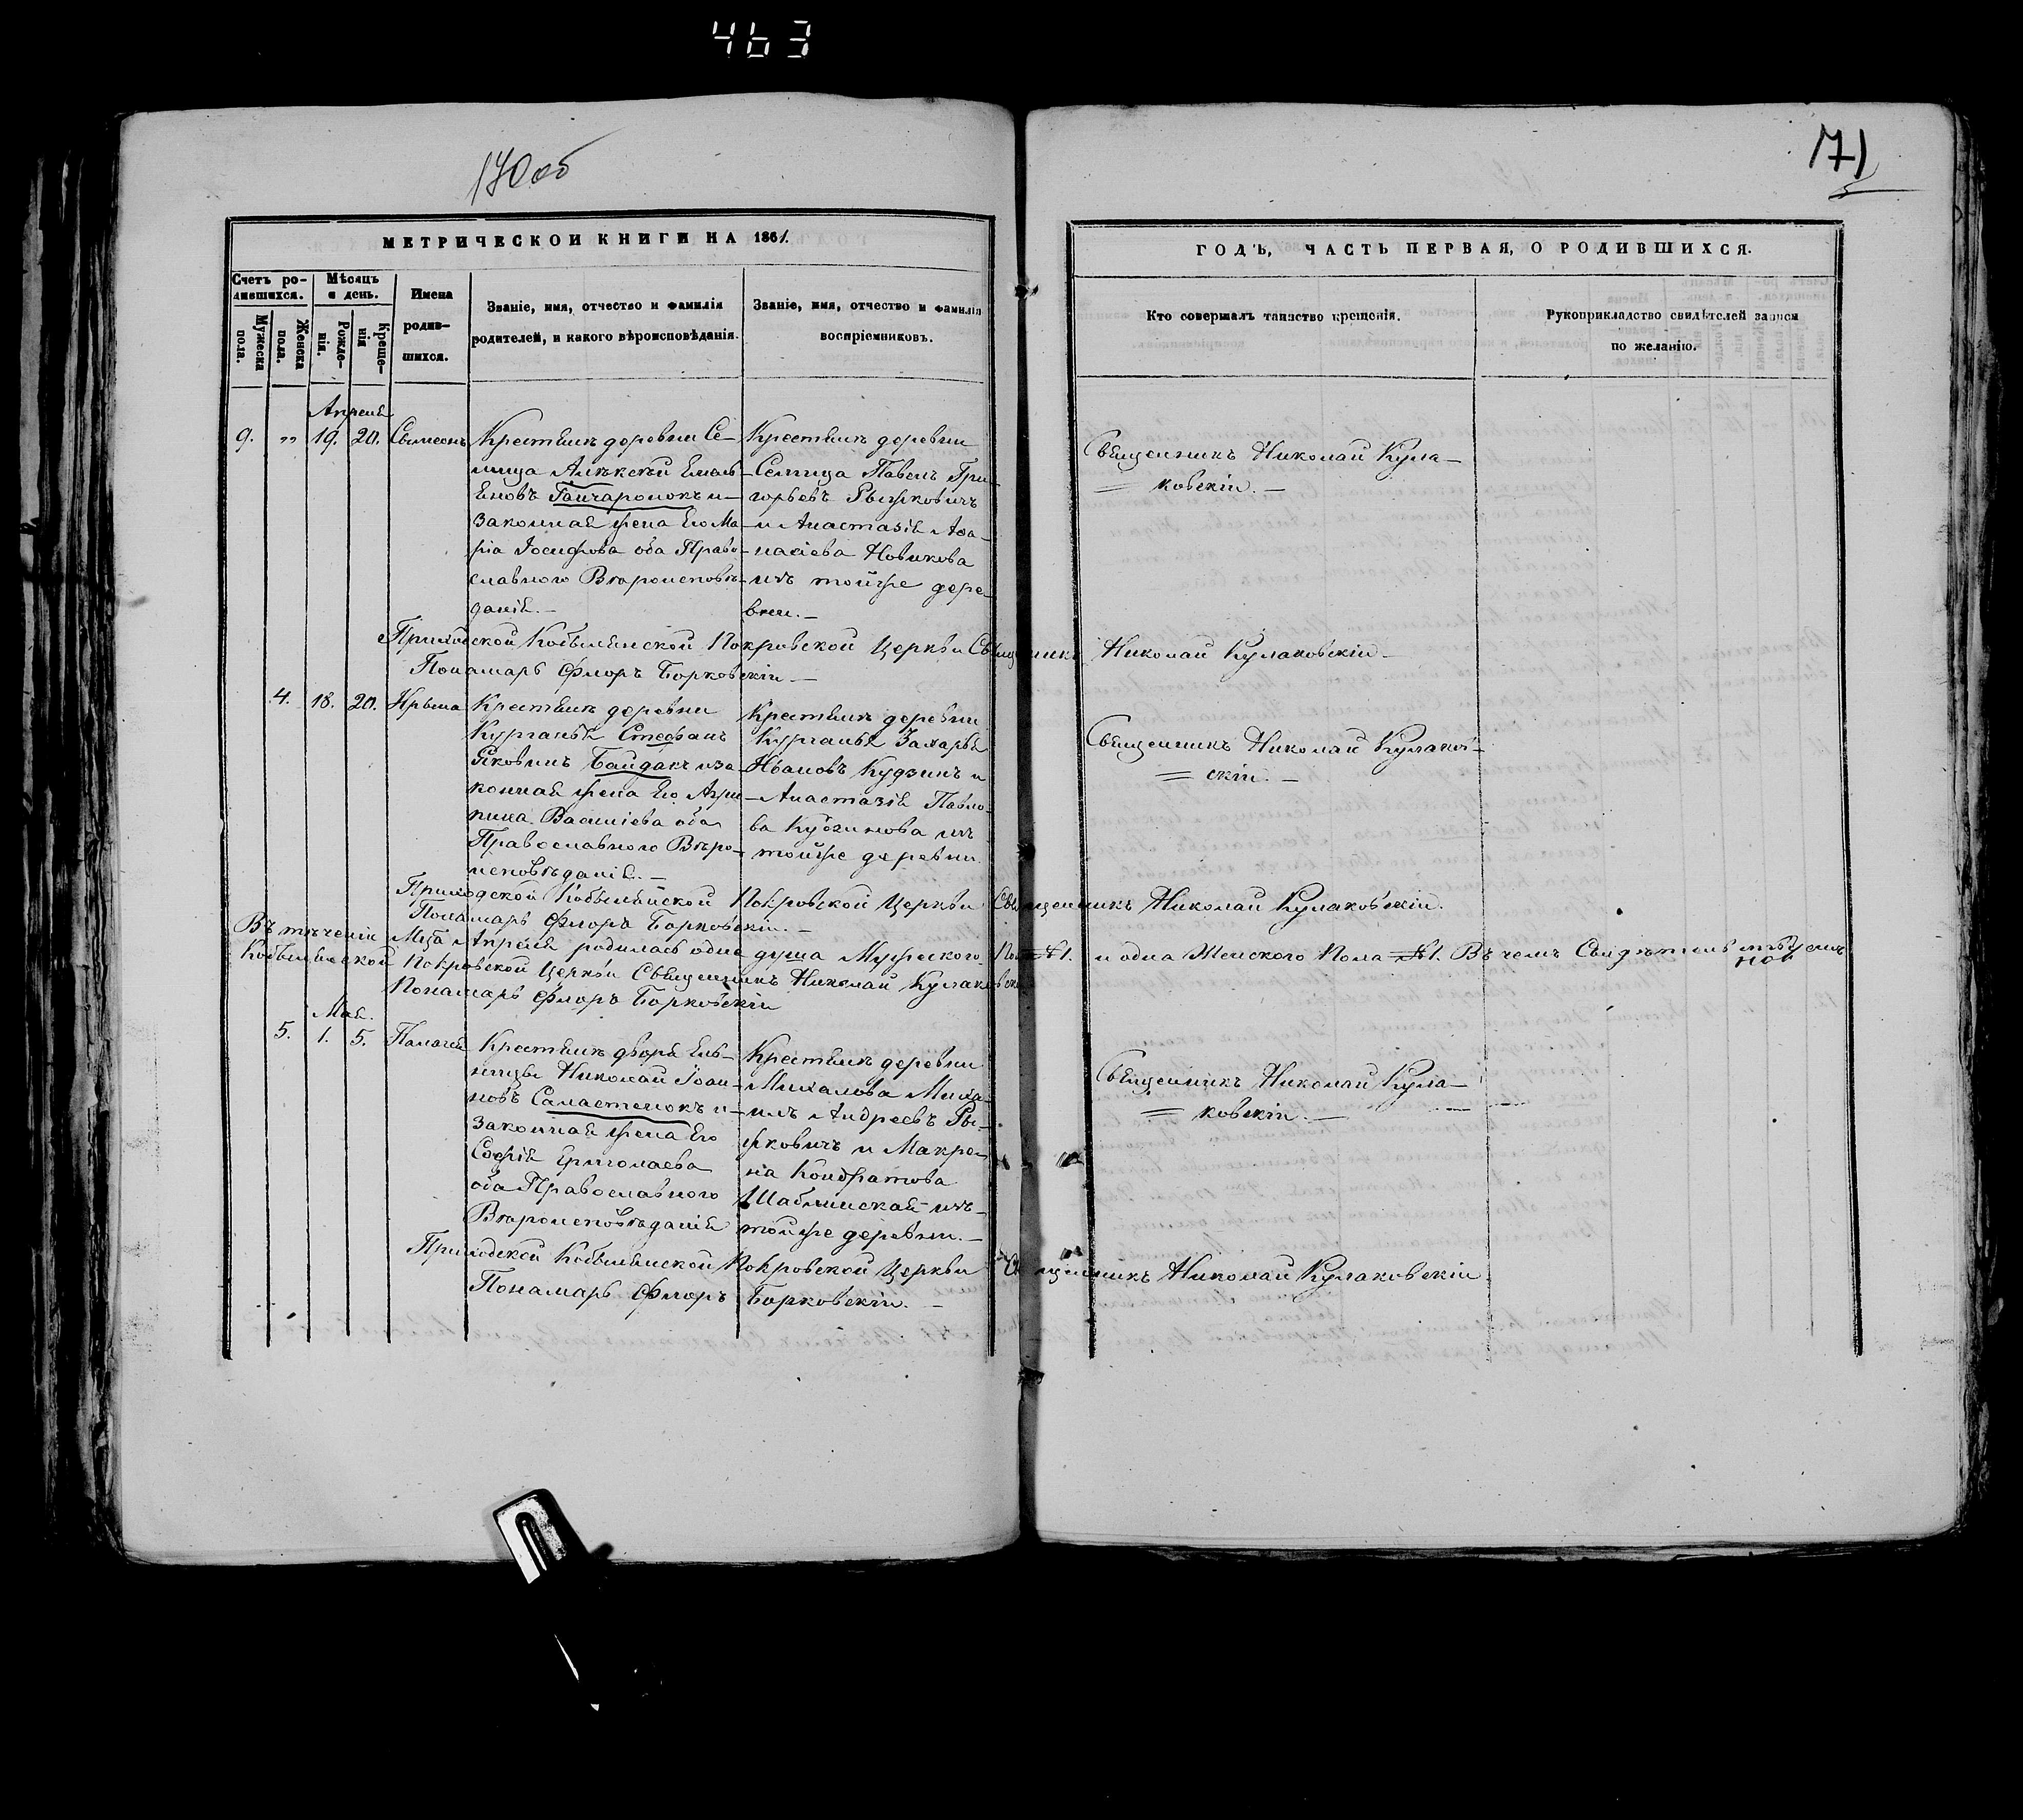 463
170 об
171
МЕТРИЧЕСКОЙ КНИГИ НА 1861.
ГОДЪ, ЧАСТЬ ПЕРВАЯ, О РОДИВШИХСЯ.
Счетъ ро-
дившихся.
Мужеска
пола.
Женска
пола.
Мѣсяцъ
и день.
Рожде-
нія.
Креще-
нія
Имена
родив-
шихся.
Званіе, имя, отчество и фамилія
родителей, и какого вѣроисповѣданія.
Званіе, имя, отчество и фамилія
воспріемниковъ.
Кто совершалъ таинство крещенія.
Рукоприкладство свидѣтелей записи
по желанію.
Апреля
9. „ 19. 20. Сѵмеонъ
Крестянъ деревни Се-
лища Алексѣй Емель-
еновъ Ганчаронокъ и
законная жена Его Ма-
рія Іосифова оба Право-
славного Вѣроисповѣ-
данія.—
Крестянъ деревни
Селища Павелъ Гри-
горьевъ Рыжковичъ
и Анастазія Афа-
насіева Новикова
изъ тойже дере-
вни.—
Священникъ Николай Кула-
= ковскій.—
Приходской Кобылянской Покровской Церкви Священникъ Николай Кулаковскій—
Понамарь Флоръ Борковскій—
4. 18. 20. Ирына
Крестянъ деревни
Курганья Стефанъ
Яковинъ Байдакъ иза-
конная жена Его Агри-
пина Василіева оба
Православного Вѣро-
исповѣданія.—
Крестянъ деревни
Курганья Захарья
Ивановъ Кудзинъ и
Анастазія Павло-
ва Кудзинова изъ
тойже деревни.
Священникъ Николай Кулаков-
= скій.—
Приходской Кобылянской Покровской Церкви Священникъ Николай Кулаковскій.
Понамарь Флоръ Борковскій.—
Въ теченіи Мца Апреля родилась одна душа Мужеского Пола №1. и одна Женского Пола №1. Въ чемъ Свидѣтельствуемъ
Кобылянской Покровской Церкви Священникъ Николай Кулаковскій
Понамарь Флоръ Борковскій
Мая.
5. 1. 5. Палагея
Крестянъ двора Ель-
ницы Николай Іоан-
новъ Самастенокъ и
законная жена Его
Софія Ермолаева
оба Православного
Вѣроисповѣданія
Крестянъ деревни
Михалова Миха-
илъ Андреевъ Ры-
жковичъ и Макре-
на Кондратова
Шаблинская изъ
тойже деревни.—
Священникъ Николай Кула-
= ковскій.—
Приходской Кобылянской Покровской Церкви Священникъ Николай Кулаковскій.
Понамарь Флоръ Борковскій.—